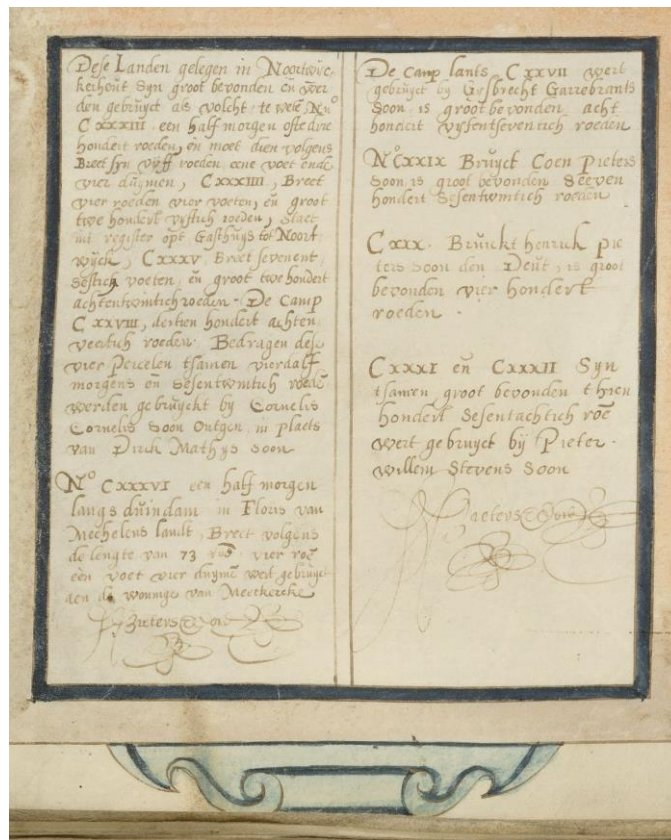 Dese Landen gelegen in Noortwyc
kerhout Syn groot bevonden en wer
den gebruyct als volcht te wetē No
CXXXIII een half morgen ofte drie
hondert roeden, en moet dien volgens
Breet syn vijff roeden eene voet ende
vier duymen, CXXXIIII, Breet
vier roeden vier voeten, en groot
twe hondert vijftich roeden, staet
int register opt Gasthuys tot Noort
wyck, CXXXV Breet sevenent
sestich voeten, en groot twe hondert
achtentwintich roeden. De Camp
CXXVIII, dertien hondert achten
veertich roeden. Bedragen dese
vier Percelen tsamen vierdalf
morgens en sesentwintich roedē
werden gebruyckt by Cornelis
Cornelis Soon Outgen in plaets
van Dirck Mathys Soon
No CXXXVI een half morgen
langs duindam in Floris van
Mechelens landt, Breet volgens
de lengte van 73 roē vier roē
een voet vier duymē wert gebruyct
aen de woninge van Meerkercke
Pieters Soon
De Camp lants CXXVII wert
gebruyct by Gysbrecht Garrebrants
Soon is groot bevonden acht
hondert vyfentseventich roeden
No CXXIX Bruyct Coen Pieters
Soon is groot bevonden Seeven
hondert Sesentwintich roeden
CXIX. Bruickt henrick pie
ters soon den Deut, is groot
bevonden vier hondert
roeden.
CXXXI en CXXXII Syn
tsamen groot bevonden thien
hondert Sesentachtich roē
wert gebruyct bij Pieter
willem Stevens Soon
Pieters Soon